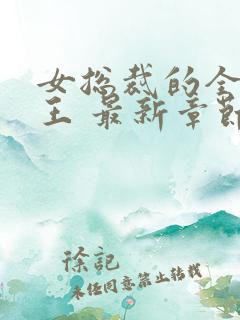 女总裁的全
王 最新章节
徐記
未经同意禁止转载